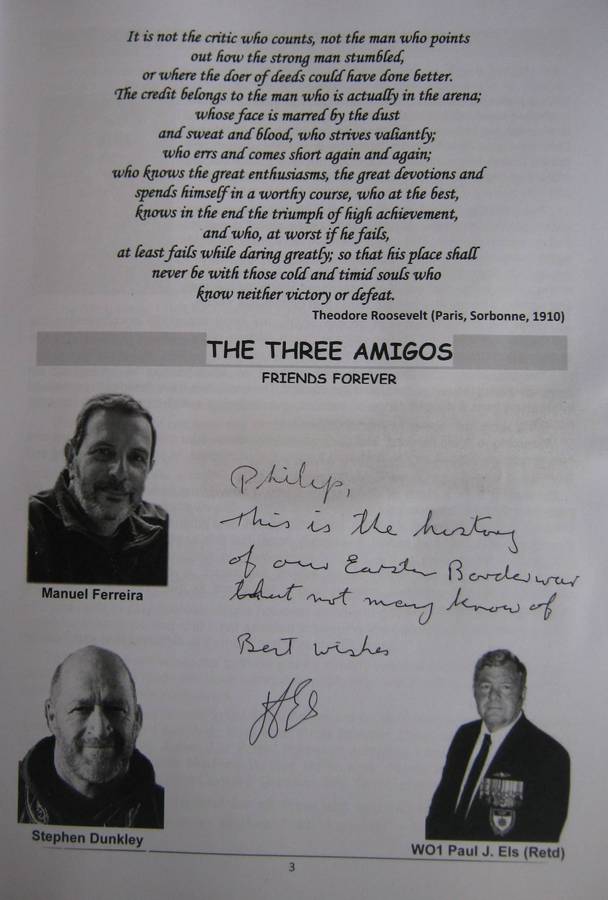 It is not the critic who counts, not the man who points
out how the strong man stumbled,
or where the doer of deeds could have done better.
The credit belongs to the man who is actually in the arena;
whose face is marred by the dust
and sweat and blood, who strives valiantly;
who errs and comes short again and again;
who knows the great enthusiasms, the great devotions and
spends himself in a worthy course, who at the best,
knows in the end the triumph of high achievement,
and who, at worst if he fails,
at least fails while daring greatly; so that his place shall
never be with those cold and timid souls who
know neither victory or defeat.
Theodore Roosevelt (Paris, Sorbonne, 1910)
THE THREE AMIGOS
FRIENDS FOREVER
Philip,
This is the history
of our Eastern Border war
that not many know of
Best wishes
Manuel Ferreira
Stephen Dunkley
WO1 Paul J. Els (Retd)
3